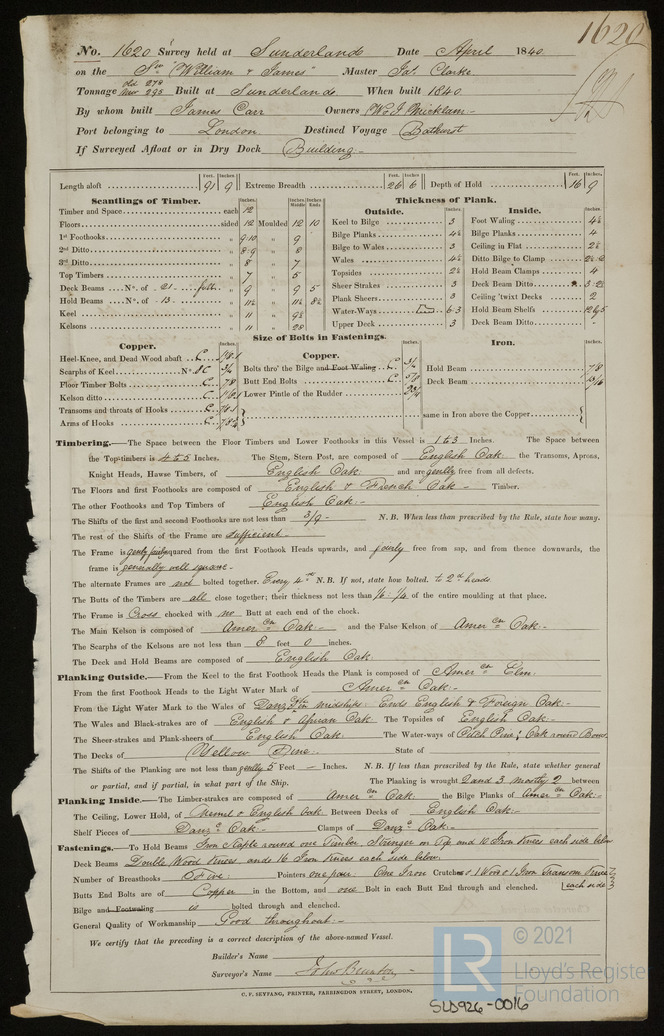 1620
No. 1620 Survey held at Sunderland Date April 1840
on the Sw "William & James" Master Jas. Clarke
Tonnage old 278 New 295 Built at Sunderland When built 1840
By whom built James Carr Owners
Port belonging to London Destined Voyage Bathurst
If Surveyed Afloat or in Dry Dock Building
Feet. Inches. Feet. Inches Feet. Inches.
Length aloft 91 9 Extreme Breadth 26 6 Depth of Hold 16 9
Scantlings of Timber.
Inches. Inches Middle Inches Ends
Timber and Space each 12
Floors sided 12 Moulded 12 10
1st Foothooks „ 9.10 „ 9
2nd Ditto „ 8.9 „ 8
3rd Ditto „ 8 „ 7
Top Timbers „ 7 „ 5
Deck Beams No. of 21 „ 9 „ 9 5
Hold Beams No. of 13 „ 11½ „ 11½ 8½
Keel „ 11 „ 9½
Kelsons „ 11 „ 28
Thickness of Plank.
Outside. Inches.
Keel to Bilge 3
Bilge Planks 4½
Bilge to Wales 3
Wales 4½
Topsides 2½
Sheer Strakes 3
Plank Sheers 3
Water-Ways 6.3
Upper Deck 3
Inside. Inches.
Foot Waling 4½
Bilge Planks 4
Ceiling in Flat 2½
Ditto Bilge to Clamp
Hold Beam Clamps 4
Deck Beam Ditto 3.2½
Ceiling 'twixt Decks 2
Hold Beam Shelfs
Deck Beam Ditto
Size of Bolts in Fastenings.
Copper. Inches.
Heel-Knee, and Dead Wood abaft C
Scarphs of Keel No. 8 C ¾
Floor Timber Bolts C 7/8
Kelson ditto C
Transoms and throats of Hooks C
Arms of Hooks C
Copper. Inches.
Bolts thro' the Bilge and Foot Waling C ¾
Butt End Bolts C 5/8
Lower Pintle of the Rudder
Iron. Inches.
Hold Beam 7/8
Deck Beam 13/16
same in Iron above the Copper
Timbering.—The Space between the Floor Timbers and Lower Foothooks in this Vessel is 1 to 3 Inches. The Space between
the Top-timbers is 4 to 5 Inches. The Stem, Stern Post, are composed of English Oak the Transoms, Aprons,
Knight Heads, Hawse Timbers, of English Oak and are genlly free from all defects.
The Floors and first Foothooks are composed of English & French Oak Timber.
The other Foothooks and Top Timbers of English Oak
The Shifts of the first and second Foothooks are not less than 3/9 N.B. When less than prescribed by the Rule, state how many.
The rest of the Shifts of the Frame are sufficient
The Frame is genlly fairly squared from the first Foothook Heads upwards, and fairly free from sap, and from thence downwards, the
frame is generally well square
The alternate Frames are not bolted together. Every 4th N.B. If not, state how bolted. to 2nd heads
The Butts of the Timbers are all close together; their thickness not less than ⅓ ¼ of the entire moulding at that place.
The Frame is Cross chocked with no Butt at each end of the chock.
The Main Kelson is composed of Amercn Oak and the False Kelson of Amercn Oak
The Scarphs of the Kelsons are not less than 8 feet 0 inches.
The Deck and Hold Beams are composed of English Oak
Planking Outside.—From the Keel to the first Foothook Heads the Plank is composed of Amercn Elm
From the first Foothook Heads to the Light Water Mark of Amercn Oak
From the Light Water Mark to the Wales of Danzc Fir midships: Ends English & Foreign Oak
The Wales and Black-strakes are of English & African Oak The Topsides of English Oak
The Sheer-strakes and Plank-sheers of English Oak The Water-ways of Pitch Pine; Oak round Bows
The Decks of Yellow Pine State of
The Shifts of the Planking are not less than genlly 5 Feet — Inches. N.B. If less than prescribed by the Rule, state whether general
or partial, and if partial, in what part of the Ship. The Planking is wrought 2 and 3 mostly 2 between
Planking Inside.—The Limber-strakes are composed of Amercn Oak the Bilge Planks of Amercn Oak
The Ceiling, Lower Hold, of Memel & English Oak Between Decks of English Oak
Shelf Pieces of Danzc Oak Clamps of Danzc Oak
Fastenings.—To Hold Beams Iron Staple round one Timber Stringer on Top and 10 Iron Knees each side below
Deck Beams Double Wood Knees ands 16 Iron Knees each side below
Number of Breasthooks Five Pointers one pair One Iron Crutches & 1 Wood & 1 Iron Transom Knees each side
Butts End Bolts are of Copper in the Bottom, and one Bolt in each Butt End through and clenched.
Bilge and Footwaling is bolted through and clenched.
General Quality of Workmanship Good throughout
We certify that the preceding is a correct description of the above-named Vessel.
Builder's Name
Surveyor's Name John Brunton
C. F. SEYFANG, PRINTER, FARRINGDON STREET, LONDON.
SLD926-0016
LR
© 2021
Lloyd's Register
Foundation